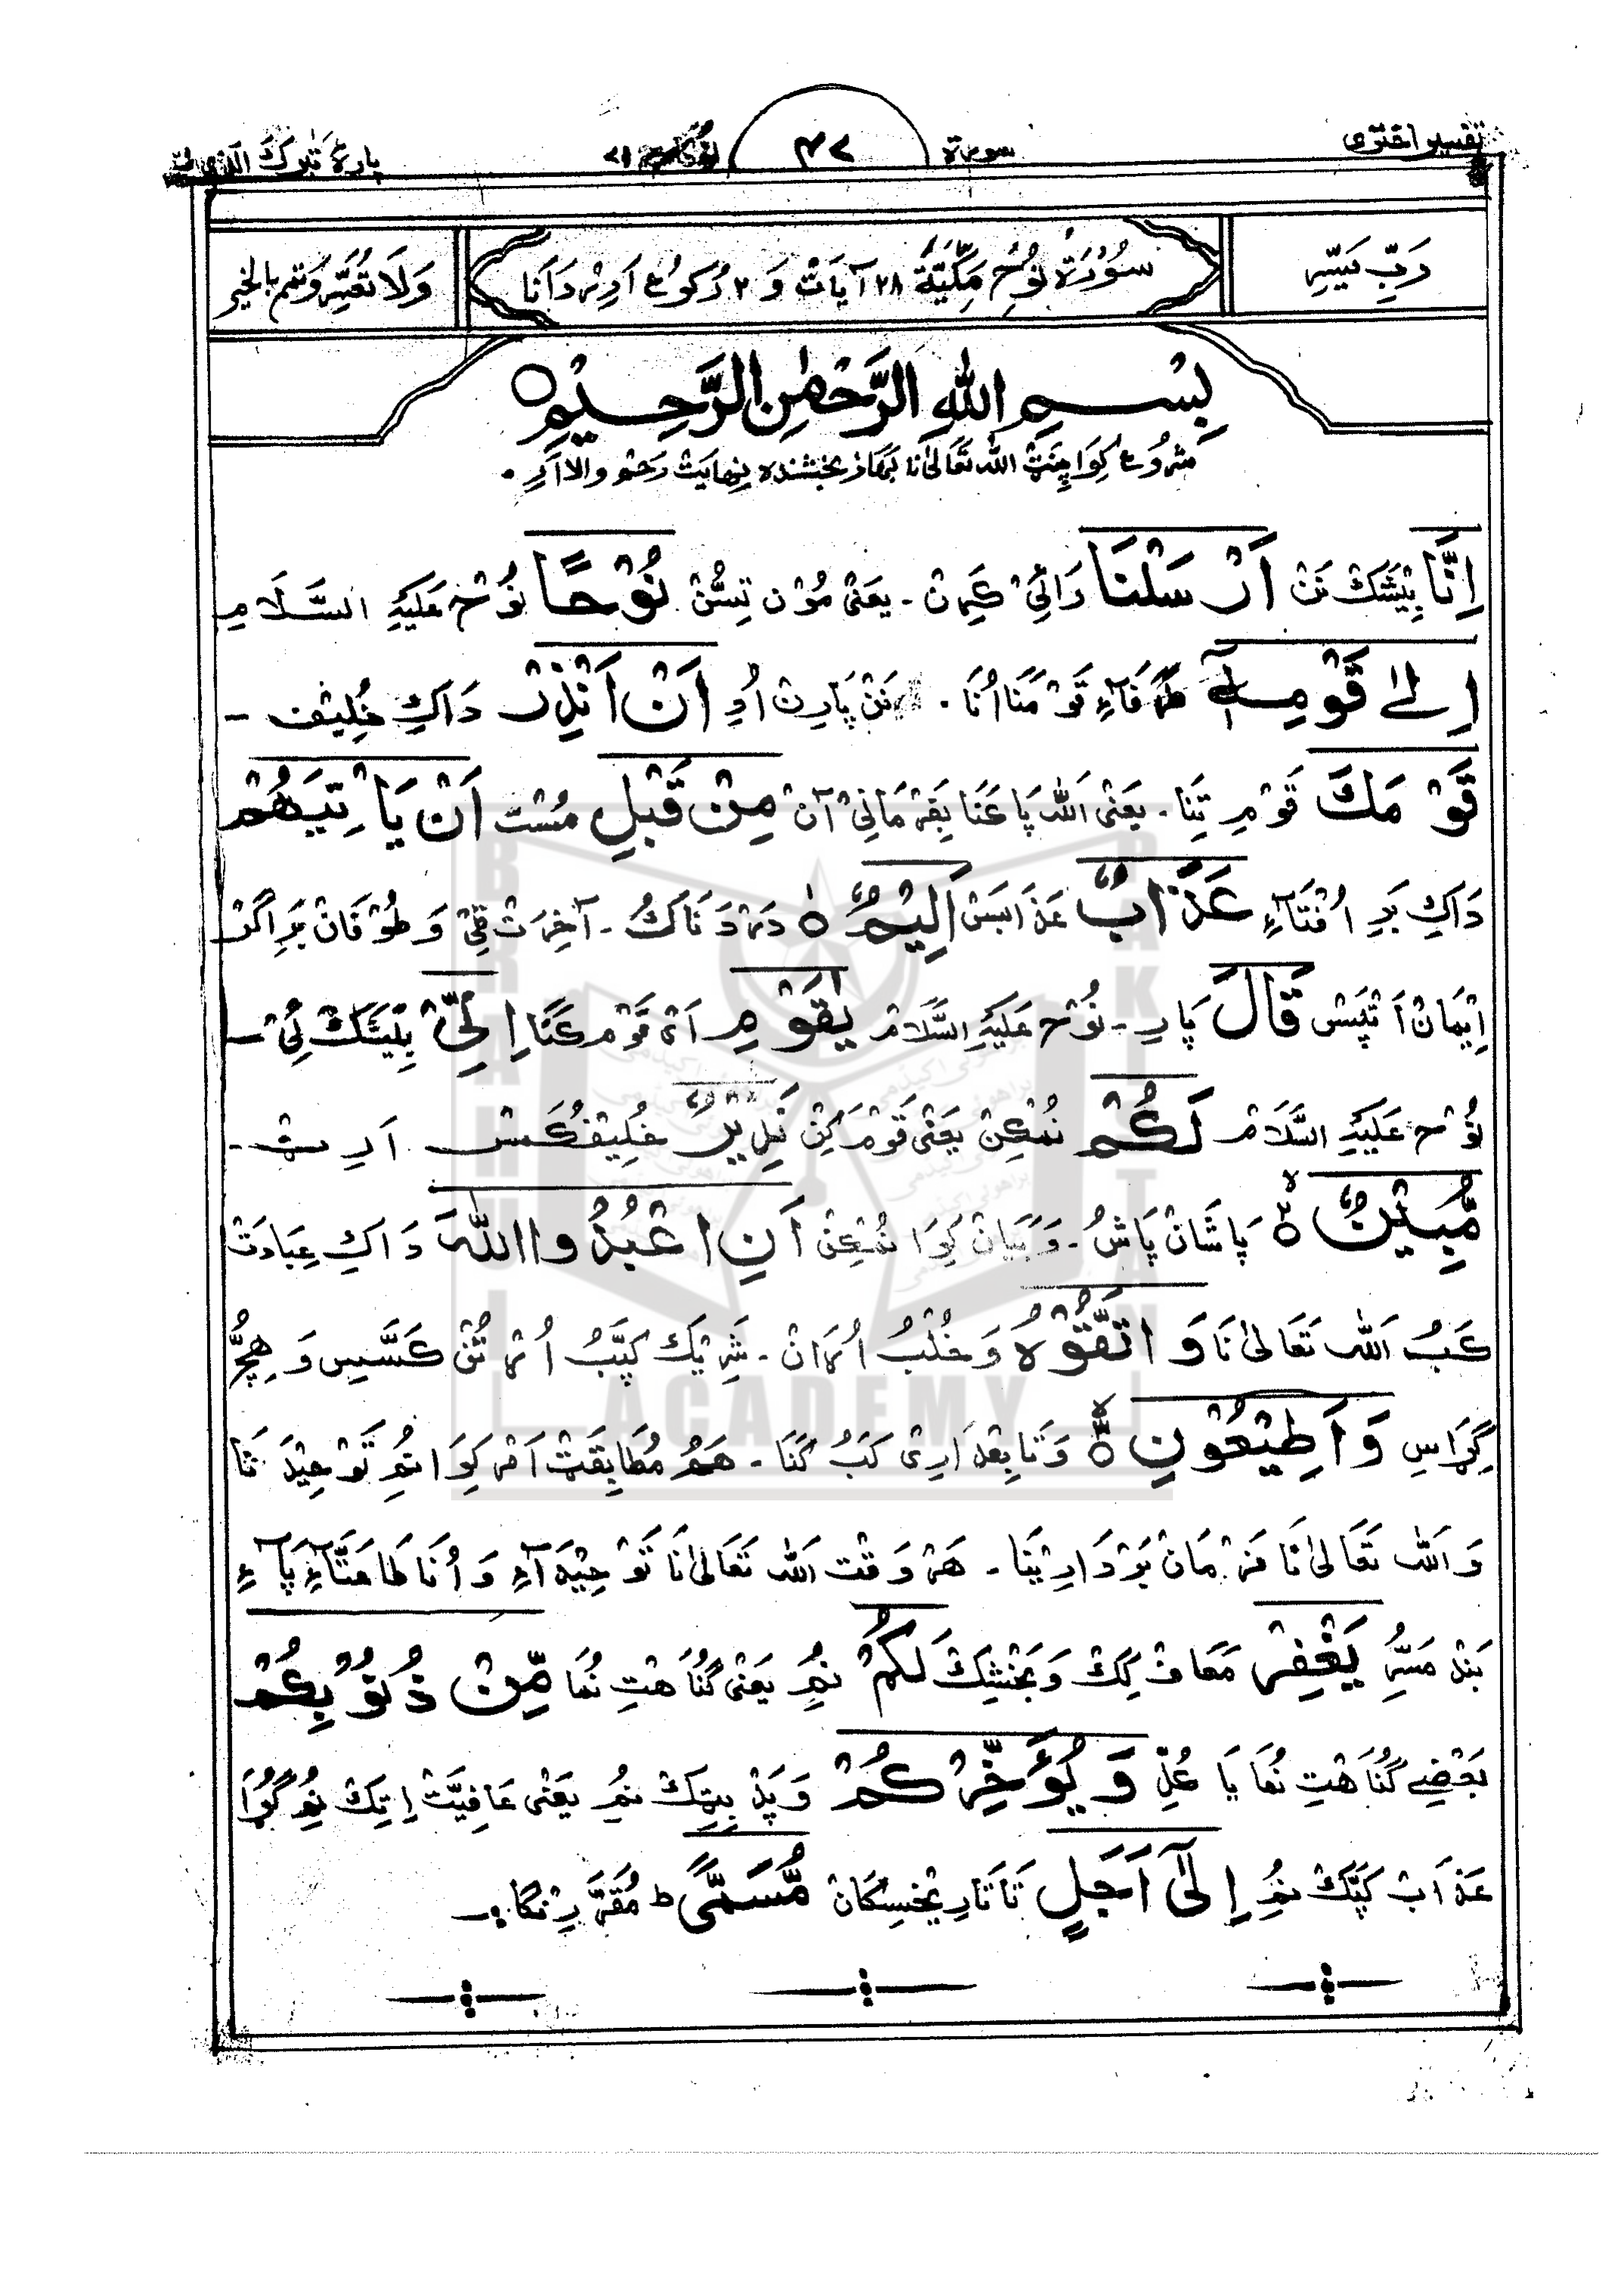 تفسیر اختری
سورۃ
۴۷
نوح ۷۱
پارۂ تَبٰرَكَ الَّذِی
رَبِّ یَسِّر
سُوْرَۃُ نُوْحٍ مَکِّیَّۃٌ ۲۸ آیَات وَ ۲ رُکُوْع اَرِیْر دَانَا
وَلَا تُعَسِّر وَتَمِّم بِالخَیر
بِسْمِ اللّٰهِ الرَّحْمٰنِ الرَّحِیْمِ
شُرُوع کِوَا پِنَٹ اللّٰه تَعَالیٰ نَا بَھَاز بخشندہ نِہایَت رَحم والا اَرِ۔
اِنَّا بِیْشَک نَن اَرْسَلْنَا رَائِی کَرِن ۔ یعنی مُوْن تِسُّن نُوْحًا نُوْح عَلَیْہِ السَّلَام
اِلٰے قَوْمِہٖٓ طَرَفَآءِ قَوْمَنَا اُنَا ۔ نَن پَارِن اُدِ اَنْ اَنْذِرْ دَاکِ خُلِیف ۔
قَوْمَكَ قَوْمِ تِنَا ۔ یَعنی اَللّٰه پَاعَنَا بِفَرْمَانِی آن مِنْ قَبْلِ مُسْت اَنْ یَاْتِیَھُمْ
دَاکِ بَرِ اُفْتَآءِ عَذَابٌ عَذَابَس اَلِیْمٌ دَرْدَنَاک ۔ آخِرَت ٹِی وَ طُوْفَان بَر اگر
اِیْمَان اَتَپَس قَالَ پَارِ ۔ نُوْح عَلَیْہِ السَّلَام یٰقَوْمِ اَی قَوْم کَنَا اِنِّیْ بِیْشَک اِی ۔
نُوْح عَلَیْہِ السَّلَام لَكُمْ نُمکِن یَعنی قَوْم کِن نَذِیْرٌ خُلِیفُکَس اَرِیٹ ۔
مُّبِیْنٌ پَاشَان پَاش ۔ وَ بَیَان کِوَا نُمکِن اَنِ اعْبُدُوا اللّٰهَ دَاکِ عِبَادَت
کَبُ اَللّٰه تَعَالیٰ نَا وَ اتَّقُوْہُ وَ خُلْبُ اُرَان ۔ شَرِیْک کَپَبُ اُرْتُن کَسَّسِ وَ ھِچُّ
گِرَاسِ وَ اَطِیْعُوْنِ وَ تَابِعْدَارِی کَبُ کَنَا ۔ ھَمُ مُطَابِقَت اَمر کِوَا نُمِ تَوْحِیْدَ نَا
وَ اَللّٰه تَعَالیٰ نَا فَرْمَان بَرْدَارِیْنَا ۔ ھَر وَقْت اَللّٰه تَعَالیٰ نَا تَوْحِیْدَآءِ وَ اُنَا طَاعَتَآءِ پَآءِ
بَنْد مَسُّرِ یَغْفِرْ مَعَاف کِک وَ بَخْشِک لَكُمْ نُمِ یَعنی گُنَاھْتِ نُمَا مِّنْ ذُنُوْبِكُمْ
بَعْضِے گُنَاھْتِ نُمَا یَا کُلّ وَ یُؤَخِّرْكُمْ وَ پَد بِیتِک نُمِ یَعنی عَافِیَّت اِتِک نُمِ گُڑَا
عَذَاب کَپَّک نُمِ اِلٰٓی اَجَلٍ تَاتَارِیْخِسکَان مُّسَمًّى ط مُقَرَّرِیْنگا ۔